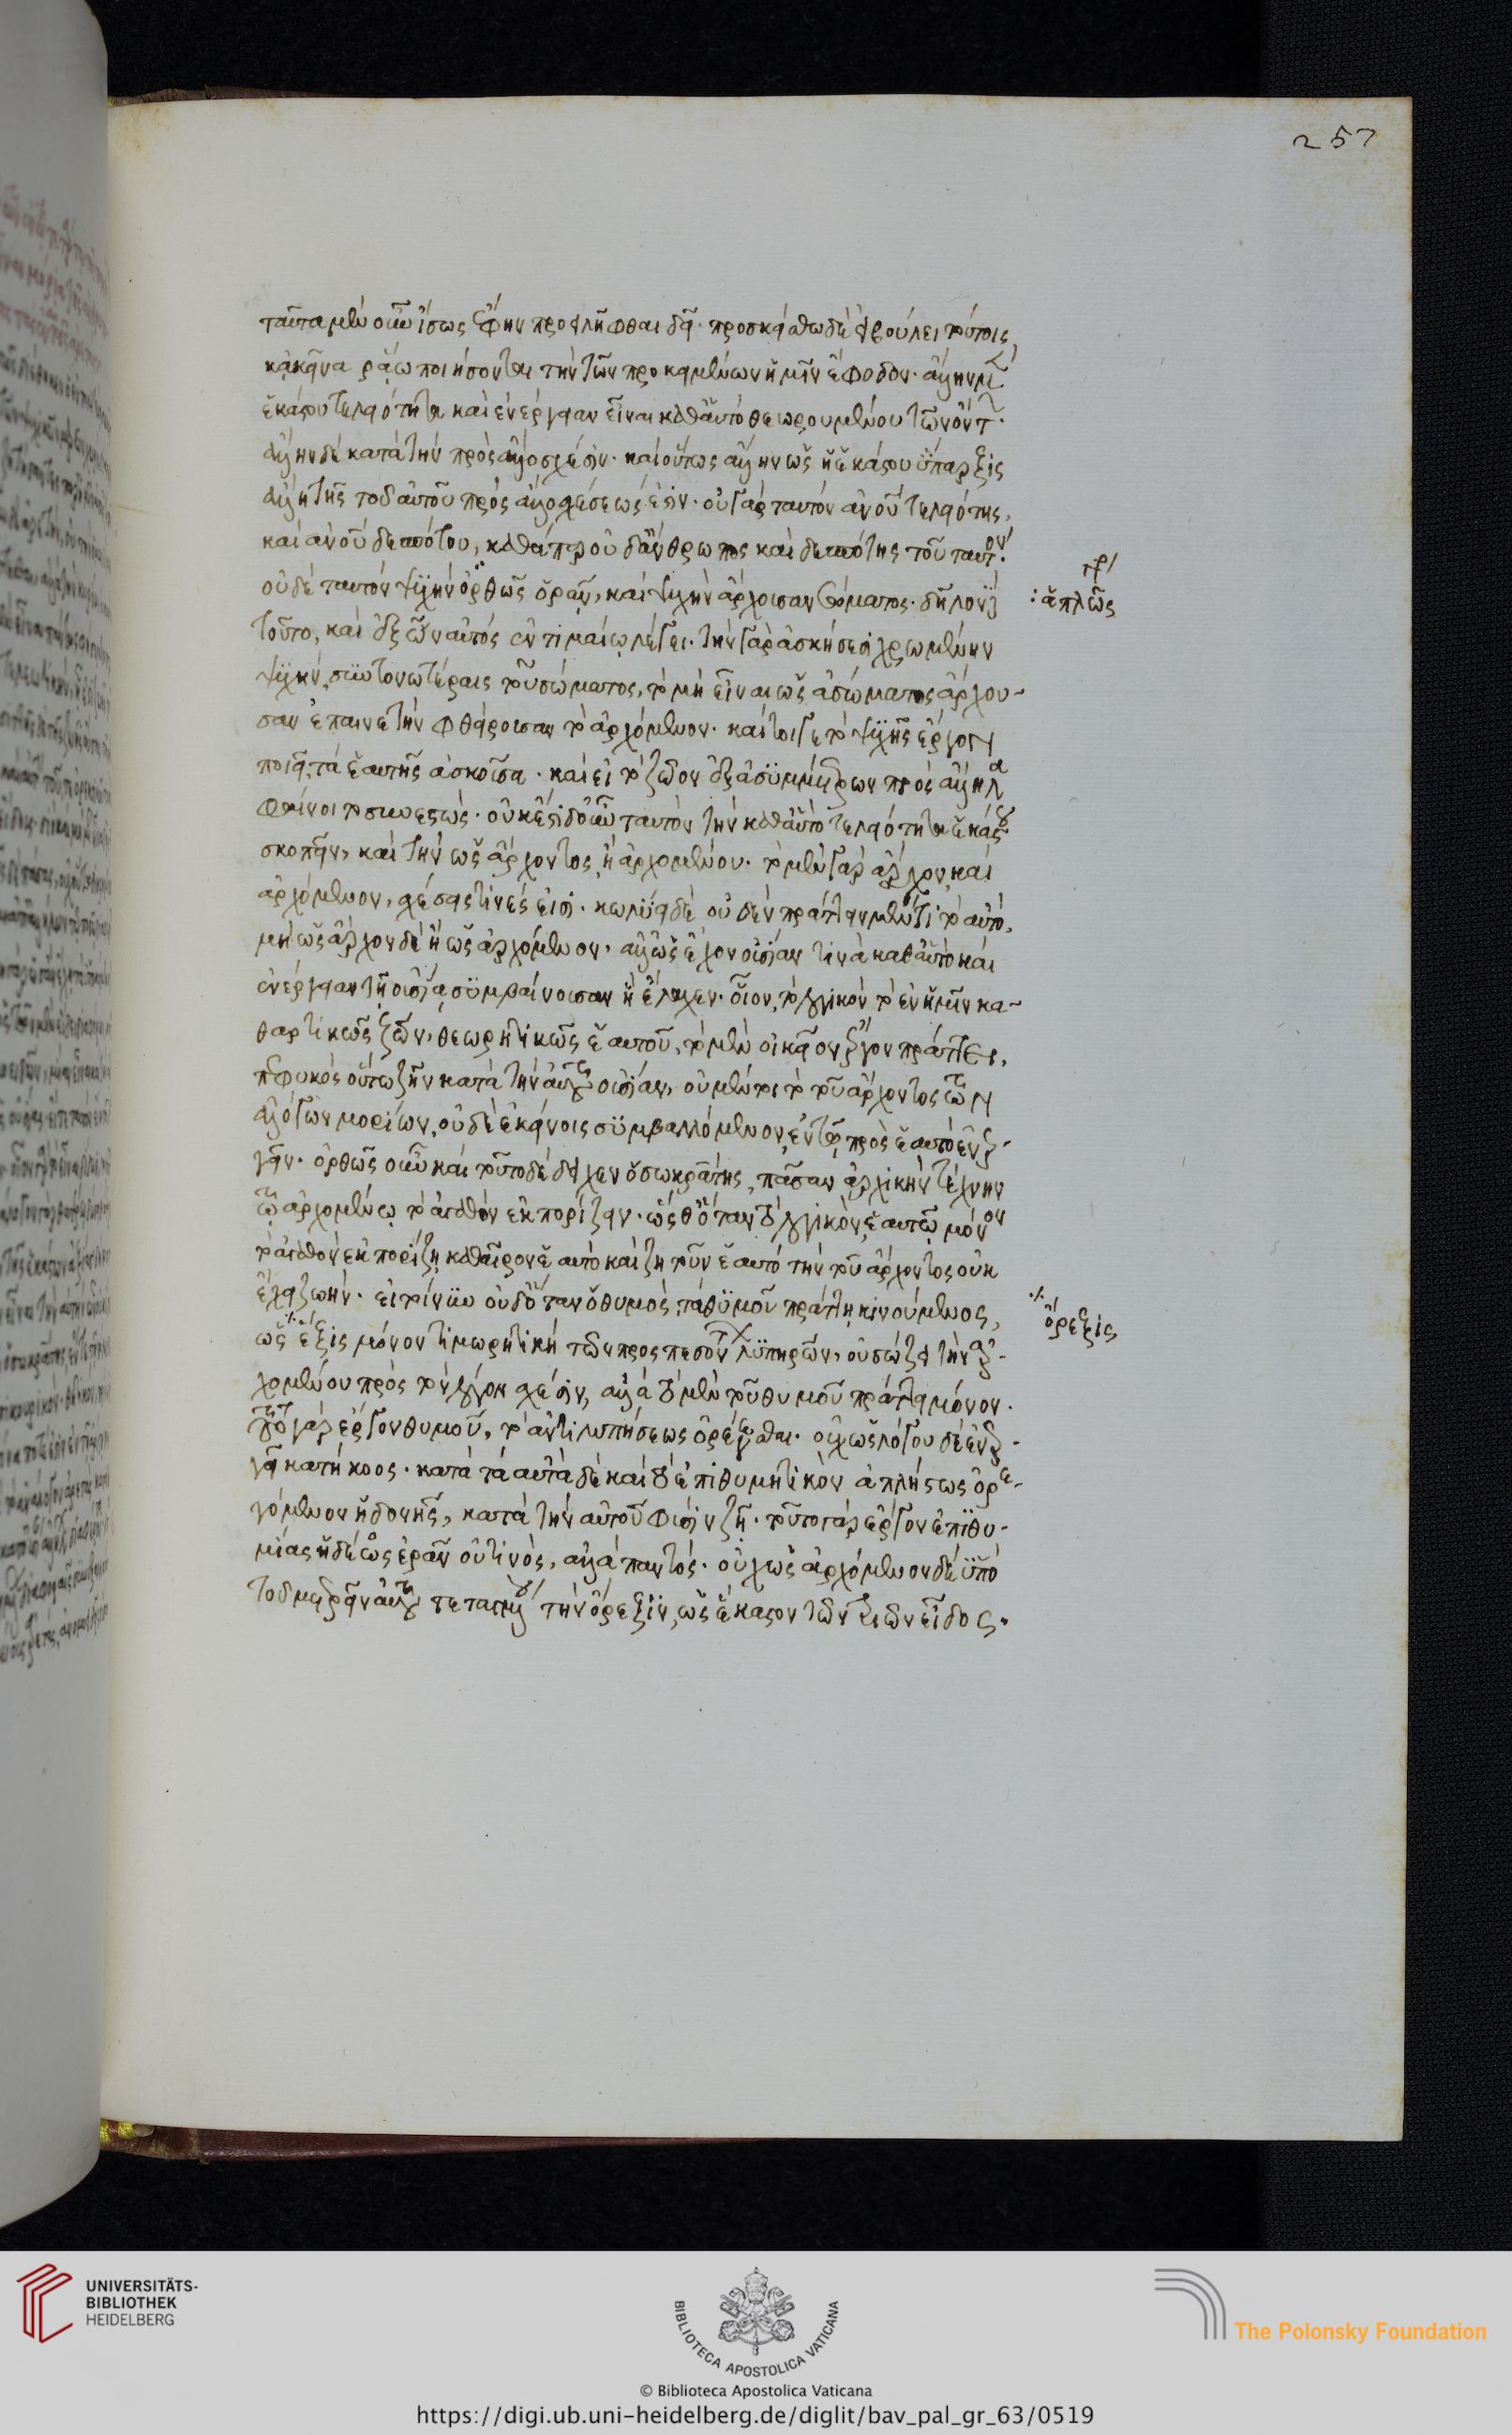 257
ταῦτα μὲν οὖν ἴσως ἔφην προειλῆφθαι δεῖ· προσκείσθω δὲ εἰ βούλει τούτοις
κἀκεῖνα ῥᾴω ποιήσοντα τὴν τῶν προκειμένων ἡμῖν ἔφοδον· ἄλλην μὲν
ἑκάστου τελειότητα καὶ ἐνέργειαν εἶναι καθ' αὑτὸ θεωρουμένου τῶν ὄντων·
ἄλλην δὲ κατὰ τὴν πρὸς ἄλλο σχέσιν· καὶ οὕτως ἄλλην ὡς ἡ ἑκάστου ὕπαρξις
ἄλλη τῆς τοῦ αὐτοῦ πρὸς ἄλλο σχέσεώς ἐστιν· οὐ γὰρ ταυτὸν ἀνοῦ τελειότης,
καὶ ἀνοῦ δεσπότου, καθάπερ οὐδ' ἄνθρωπος καὶ δεσπότης τοῦ ταυτόν·
οὐδὲ ταυτὸν ψυχὴν ὀρθῶς ὁρᾶν, καὶ ψυχὴν ἄρχουσαν σώματος· δηλοῖ
τοῦτο, καὶ ἐξ ὧν αὐτὸς ἐν τιμαίῳ λέγει· τὴν γὰρ ἀσκήσεσι χρωμένην
ψυχὴν συντονωτέραις τοῦ σώματος, τὸ μὴ εἶναι ὡς ἀσώματος ἄρχου-
σαν ἐπαινετὴν φθείρουσαν τὸ ἀρχόμενον· καίτοι γε τὸ ψυχῆς ἔργον
ποιεῖ, τὰ ἑαυτῆς ἀσκοῦσα· καὶ εἰ τὸ ζῶον ἐξ ἀσυμμέτρων πρὸς ἄλληλα
φαίνοιτο συνεστώς· οὐκ ἔστιν οὖν ταυτὸν τὴν καθ' αὑτὸ τελειότητα ἑκάστου
σκοπεῖν, καὶ τὴν ὡς ἄρχοντος, ἢ ἀρχομένου· τὸ μὲν γὰρ ἄρχον, καὶ
ἀρχόμενον, σχέσεις τινές εἰσι· κωλύει δὲ οὐδὲν πράττειν μέν τι τὸ αὐτό,
μὴ ὡς ἄρχον δὲ ἢ ὡς ἀρχόμενον· ἀλλ' ὡς ἔχον οὐσίαν τινὰ καθ' αὑτὸ καὶ
ἐνέργειαν τῇ οὐσίᾳ συμβαίνουσαν ἣ ἔλαχεν· οἷον, τὸ λογικὸν τὸ ἐν ἡμῖν κα-
θαρτικῶς ζῶν, θεωρητικῶς ἑαυτοῦ, τὸ μὲν οἰκεῖον ἔργον πράττει,
πεφυκὸς οὕτω ζῆν κατὰ τὴν αὑτοῦ οὐσίαν, οὐ μέντοι τὸ τοῦ ἄρχοντος τῶν
ἀλόγων μορίων, οὐδὲ ἐκείνοις συμβαλλόμενον, ἐν τῷ πρὸς ἑαυτὸ ἐνερ-
γεῖν· ὀρθῶς οὖν καὶ τοῦτο δέδειχεν ὁ σωκράτης, πᾶσαν ἀρχικὴν τέχνην
τῷ ἀρχομένῳ τὸ ἀγαθὸν ἐκπορίζειν· ὥσθ' ὅταν τὸ λογικὸν, ἑαυτῷ μόνον
τὸ ἀγαθὸν ἐκπορίζῃ καθαῖρον ἑαυτὸ καὶ ζητοῦν ἑαυτὸ τὴν τοῦ ἄρχοντος οὐκ
ἔχει ζωήν· εἰ τοίνυν οὐδ' ὅταν ὁ θυμὸς, τὰ θυμοῦ πράττῃ κινούμενος,
ὡς ἕξις μόνον τιμωρητικὴ τῶν προσπεσόντων λυπηρῶν, οὐ σώζει τὴν ἀρ-
χομένου πρὸς τὸν λόγον σχέσιν, ἀλλὰ τὸ μὲν τοῦ θυμοῦ πράττει μόνον·
τοῦτο γὰρ ἔργον θυμοῦ, τὸ ἀντιλυπήσεως ὀρέγεσθαι· οὐχ ὡς λόγου δὲ ἐνερ-
γεῖ κατήκοος· κατὰ τὰ αὐτὰ δὲ καὶ τὸ ἐπιθυμητικὸν ἀπλήστως ὀρε-
γόμενον ἡδονῆς, κατὰ τὴν αὑτοῦ φύσιν ζῇ· τοῦτο γὰρ ἔργον ἐπιθυ-
μίας ἡδέως ἐρᾶν οὔτινὸς, ἀλλὰ παντός· οὐχ ὡς ἀρχόμενον δὲ ὑπὸ
τοῦ μετρεῖν αὐτοῦ τεταγμένου τὴν ὄρεξιν, ὡς ἕκαστον τῶν τριῶν εἶδος·
γρ
ἁπλῶς
ὄρεξις
UNIVERSITÄTS-
BIBLIOTHEK
HEIDELBERG
BIBLIOTECA APOSTOLICA VATICANA
The Polonsky Foundation
© Biblioteca Apostolica Vaticana
https://digi.ub.uni-heidelberg.de/diglit/bav_pal_gr_63/0519